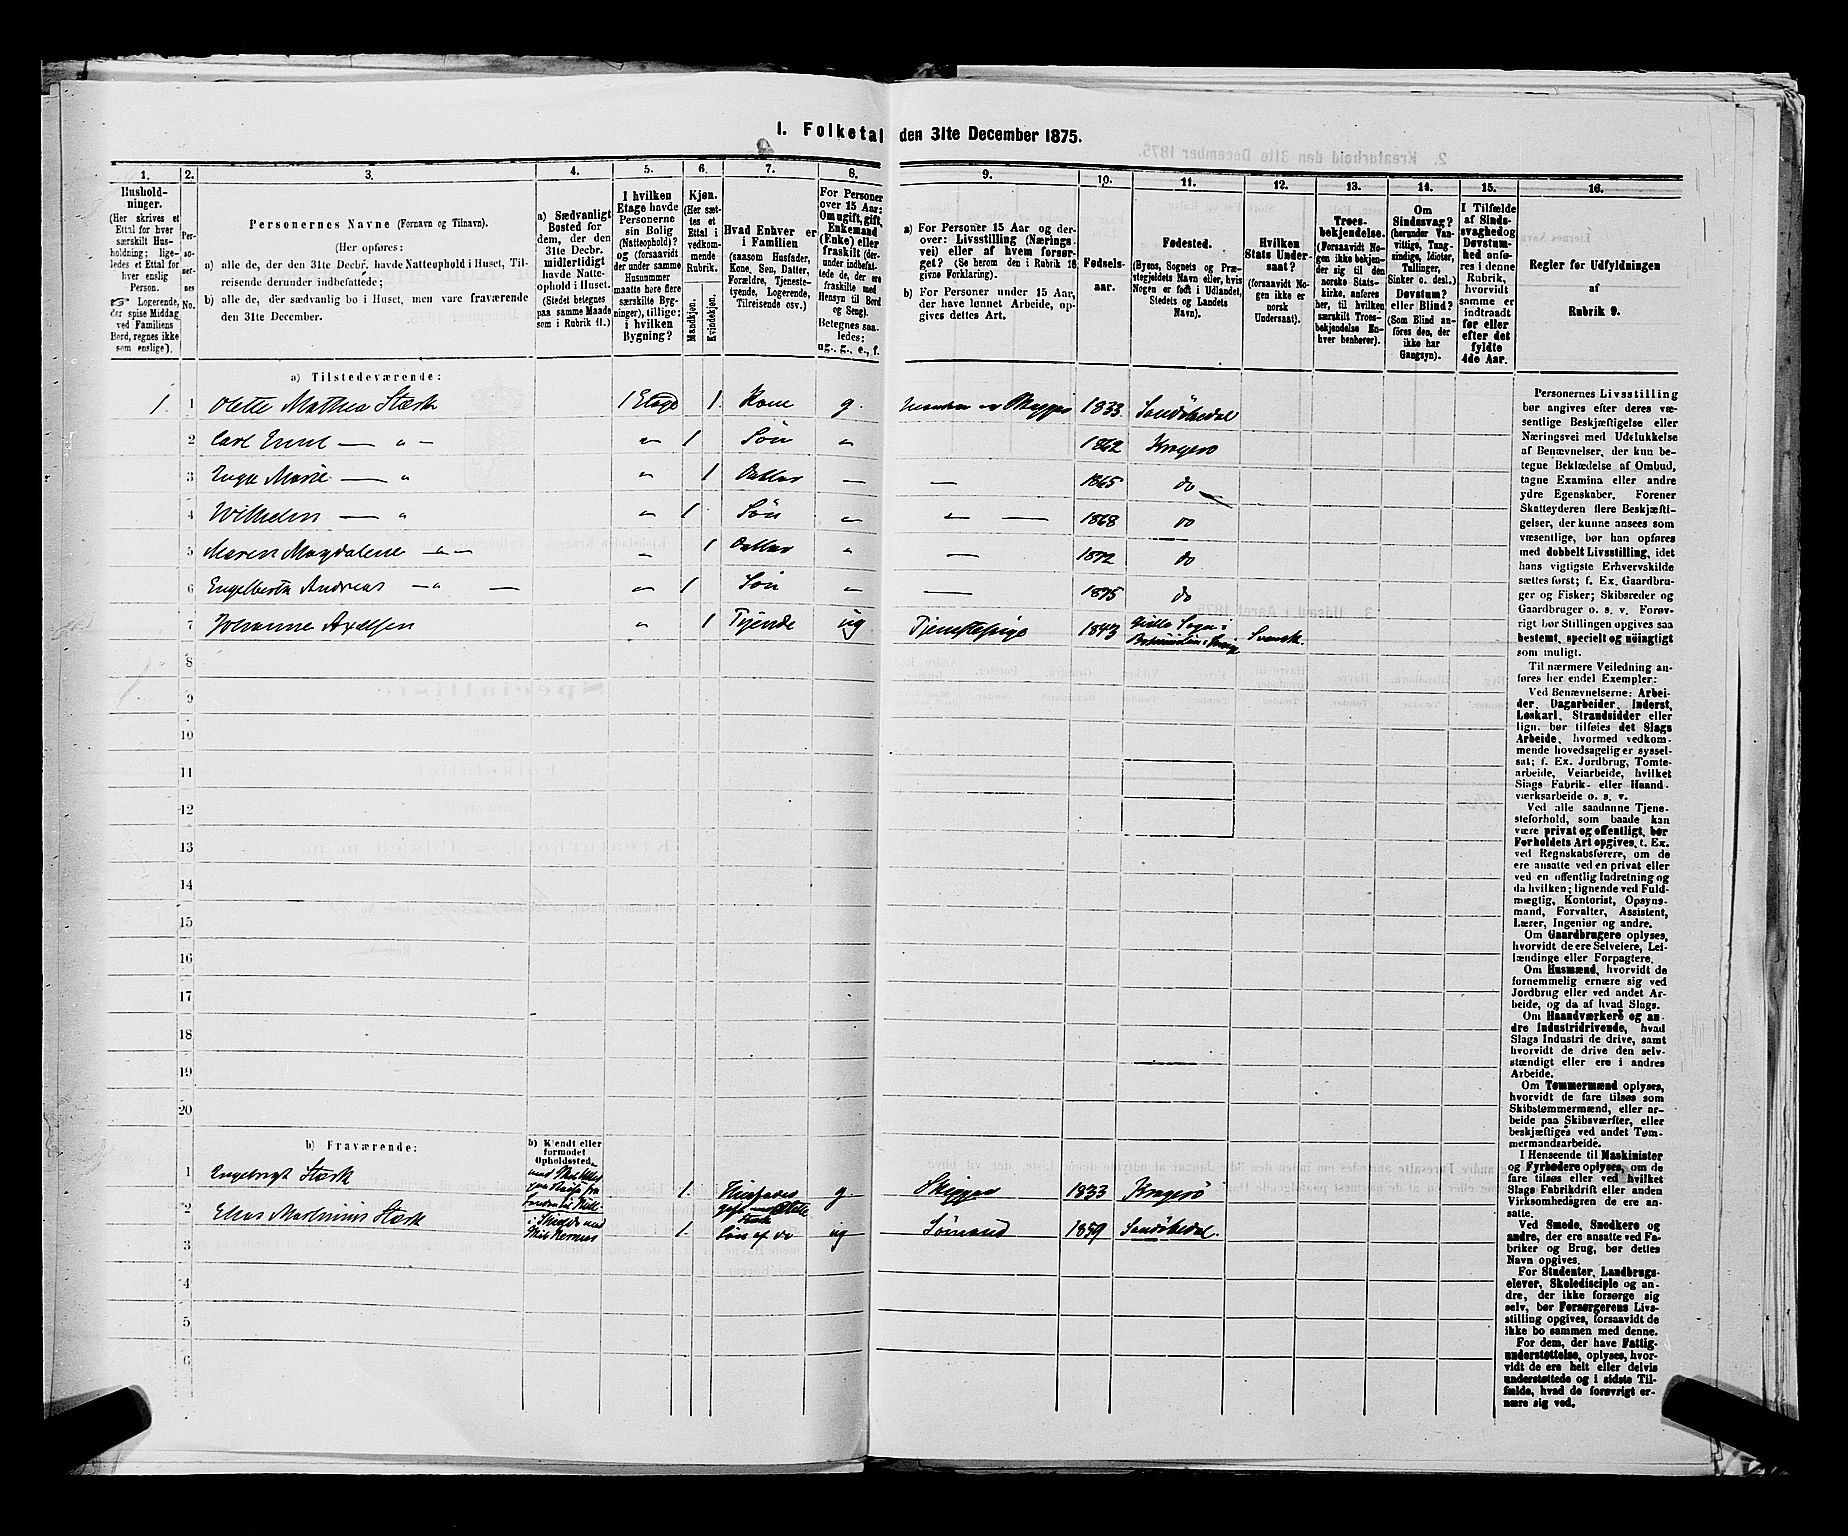 1. Folketal den 31te December 1875.
1.
Hushold-
ninger.
(Her skrives et
Ettal for hver
særskilt Hus-
holdning; lige-
ledes et Ettal for
hver enslig
Person.
☞ Logerende,
der spise Middag
ved Familiens
Bord, regnes ikke
som enslige).
2.
Per-
so-
ner-
nes
No.
3.
Personernes Navne (Fornavn og Tilnavn).
(Her opføres:
a) alle de, der den 31te Decbr. havde Natteophold i Huset, Til-
reisende derunder indbefattede;
b) alle de, der sædvanlig bo i Huset, men vare fraværende
den 31te December.
4.
a) Sædvanligt
Bosted for
dem, der den
31te Decbr.
midlertidigt
havde Natte-
ophold i Huset.
(Stedet betegnes
paa samme Maade
som i Rubrik 11.)
5.
I hvilken
Etage havde
Personerne
sin Bolig
(Natteophold)?
og (forsaavidt
der under samme
Husnummer
maatte høre flere
særskilte Byg-
ninger), tillige:
i hvilken
Bygning?
6.
Kjøn.
(Her sæt-
tes et
Ettal i
vedkom-
mende
Rubrik.
Mandkjøn.
Kvindekjøn.
7.
Hvad Enhver er
i Familien
(saasom Husfader,
Kone, Søn, Datter,
Forældre, Tjeneste-
tyende, Logerende,
Tilreisende osv.)
8.
For Personer
over 15 Aar:
Om ugift, gift,
Enkemand
(Enke) eller
fraskilt (der-
under indbefat-
tede de, der ere
fraskilte med
Hensyn til Bord
og Seng).
Betegnes saa-
ledes:
ug., g., e., f.
9.
a) For Personer 15 Aar og der-
over: Livsstilling (Nærings-
vei) eller af hvem forsør-
get? (Se herom den i Rubrik 16
givne Forklaring).
b) For Personer under 15 Aar,
der have lønnet Arbeide, op-
gives dettes Art.
10.
Fødsels-
aar.
11.
Fødested.
(Byens, Sognets og Præ-
stegjeldets Navn eller, hvis
Nogen er født i Udlandet,
Stedets og Landets
Navn).
12.
Hvilken
Stats Under-
saat?
(forsaavidt No-
gen ikke er
norsk
Undersaat).
13.
Troes-
bekjendelse.
(Forsaavidt No-
gen ikke bekjen-
der sig til den
norske Stats-
kirke, anføres
her, til hvilken
særskilt Troes-
bekjendelse En-
hver henhører).
14.
Om
Sindssvag?
(herunder Van-
vittige, Tung-
sindige, Idioter,
Tullinger,
Sinker o. desl.)
Døvstum?
eller Blind?
(Som Blind an-
føres den, der
ikke har
Gangsyn).
15.
I Tilfælde
af Sinds-
svaghed og
Døvstum-
hed anfø-
res i denne
Rubrik,
hvorvidt
samme er
indtraadt
før eller
efter det
fyldte
4de Aar.
16.
Regler for Udfyldningen
af
Rubrik 9.
a) Tilstedeværende:
1. 1 Olette Mathea Stærk 1 Etage 1. Kone g. 1833. Sandøkedal
2 Carl — „ — „ 1 Søn „ 1862 Kragerø
3 Inga Marie — „ „ 1 Datter — — 1865 do
4 Wilhelm — „ „ 1 Søn „ „ — 1868 do
5 Maren Magdalene „ — „ 1 Datter „ — 1872 do
6 Andreas — „ — „ 1 Søn „ — 1875 do
7 Johanne Axelsen „ 1 Tyende ug Tjenestepige 1843 Svensk.
8
9
10
11
12
13
14
15
16
17
18
19
20
b) Fraværende:
b) Kjendt eller
formodet
Opholdssted.
1 Engebregt Stærk 1. Husfader g. Skipper 1833 Kragerø
2 Elias Martinius Stærk 1. Søn af do ug Sømand 1859 Sandøkedal.
3
4
5
6
Personernes Livsstilling
bør angives efter deres væ-
sentlige Beskjæftigelse eller
Næringsvei med Udelukkelse
af Benævnelser, der kun be-
tegne Beklædelse af Ombud,
tagne Examina eller andre
ydre Egenskaber. Forener
Skatteyderen flere Beskjæfti-
gelser, der kunne ansees som
væsentlige, bør han opføres
med dobbelt Livsstilling, idet
hans vigtigste Erhvervskilde
sættes først; f. Ex. Gaardbru-
ger og Fisker; Skibsreder og
Gaardbruger o. s. v. Forøv-
rigt bør Stillingen opgives saa
bestemt, specielt og nøiagtigt
som muligt.
Til nærmere Veiledning an-
føres her endel Exempler:
Ved Benævnelserne: Arbei-
der, Dagarbeider, Inderst,
Løskarl, Strandsidder eller
lign. bør tilføies det Slags
Arbeide, hvormed vedkom-
mende hovedsagelig er syssel-
sat; f. Ex. Jordbrug, Tomte-
arbeide, Veiarbeide, hvilket
Slags Fabrik- eller Haand-
værksarbeide o. s. v.
Ved alle saadanne Tjene-
steforhold, som baade kan
være privat og offentligt, bør
Forholdets Art opgives, t. Ex.
ved Regnskabsførere, om de
ere ansatte ved en privat eller
ved en offentlig Indretning og
da hvilken; lignende ved Fuld-
mægtig, Kontorist, Opsyns-
mand, Forvalter, Assistent,
Lærer, Ingeniør og andre.
Om Gaardbrugere oplyses,
hvorvidt de ere Selveiere, Lei-
lændinge eller Forpagtere.
Om Husmænd, hvorvidt de
fornemmelig ernære sig ved
Jordbrug eller ved andet Ar-
beide, og da af hvad Slags.
Om Haandværkere og an-
dre Industridrivende, hvad
Slags Industri de drive, samt
hvorvidt de drive den selv-
stændigt eller ere i andres
Arbeide.
Om Tømmermænd oplyses,
hvorvidt de fare tilsøs som
Skibstømmermænd, eller ar-
beide paa Skibsværfter, eller
beskjæftiges ved andet Tøm-
mermandsarbeide.
I Henseende til Maskinister
og Fyrbødere oplyses, om de
fare tilsøs eller ved hvilket
Slags Fabrikdrift eller anden
Virksomhedsgren de ere an-
satte.
Ved Smede, Snedkere og
andre, der ere ansatte ved Fa-
briker og Brug, bør dettes
Navn opgives.
For Studenter, Landbrugs-
elever, Skoledisciple og an-
dre, der ikke forsørge sig
selv, bør Forsørgerens Livs-
stilling opgives, forsaavidt de
ikke bo sammen med denne.
For dem, der have Fattig-
understøttelse, oplyses, hvor-
vidt de ere helt eller delvis
understøttede og i sidste Til-
fælde, hvad de forøvrigt er-
nære sig ved.